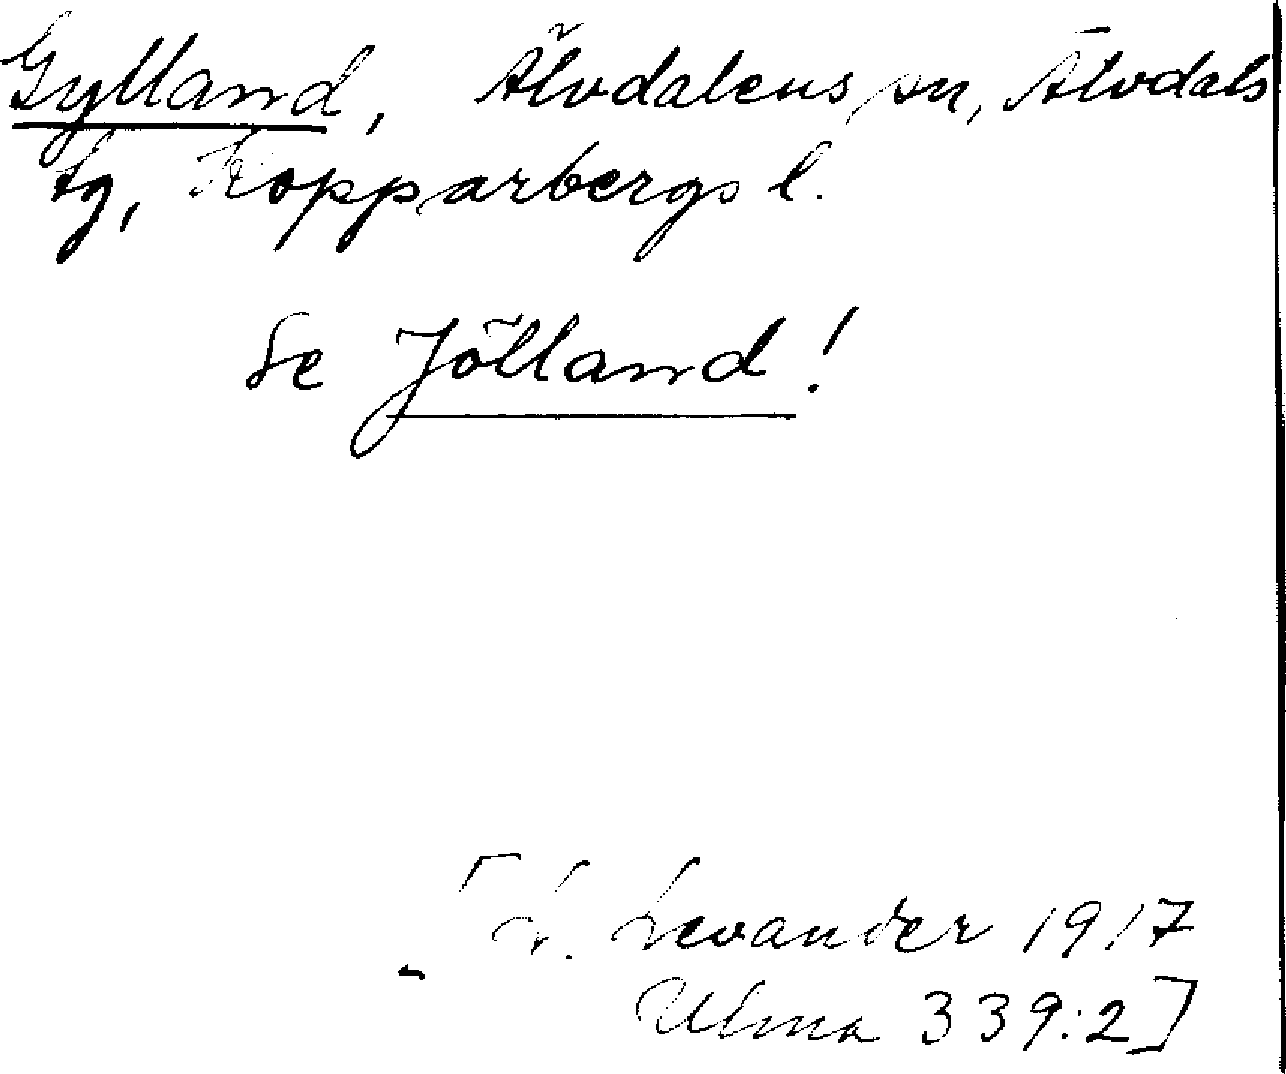 Gylland, Älvdalens sn, Älvdals
tg, Kopparbergs l.
Se Jölland!
[L. Levander 1917
Ulma 339:2]